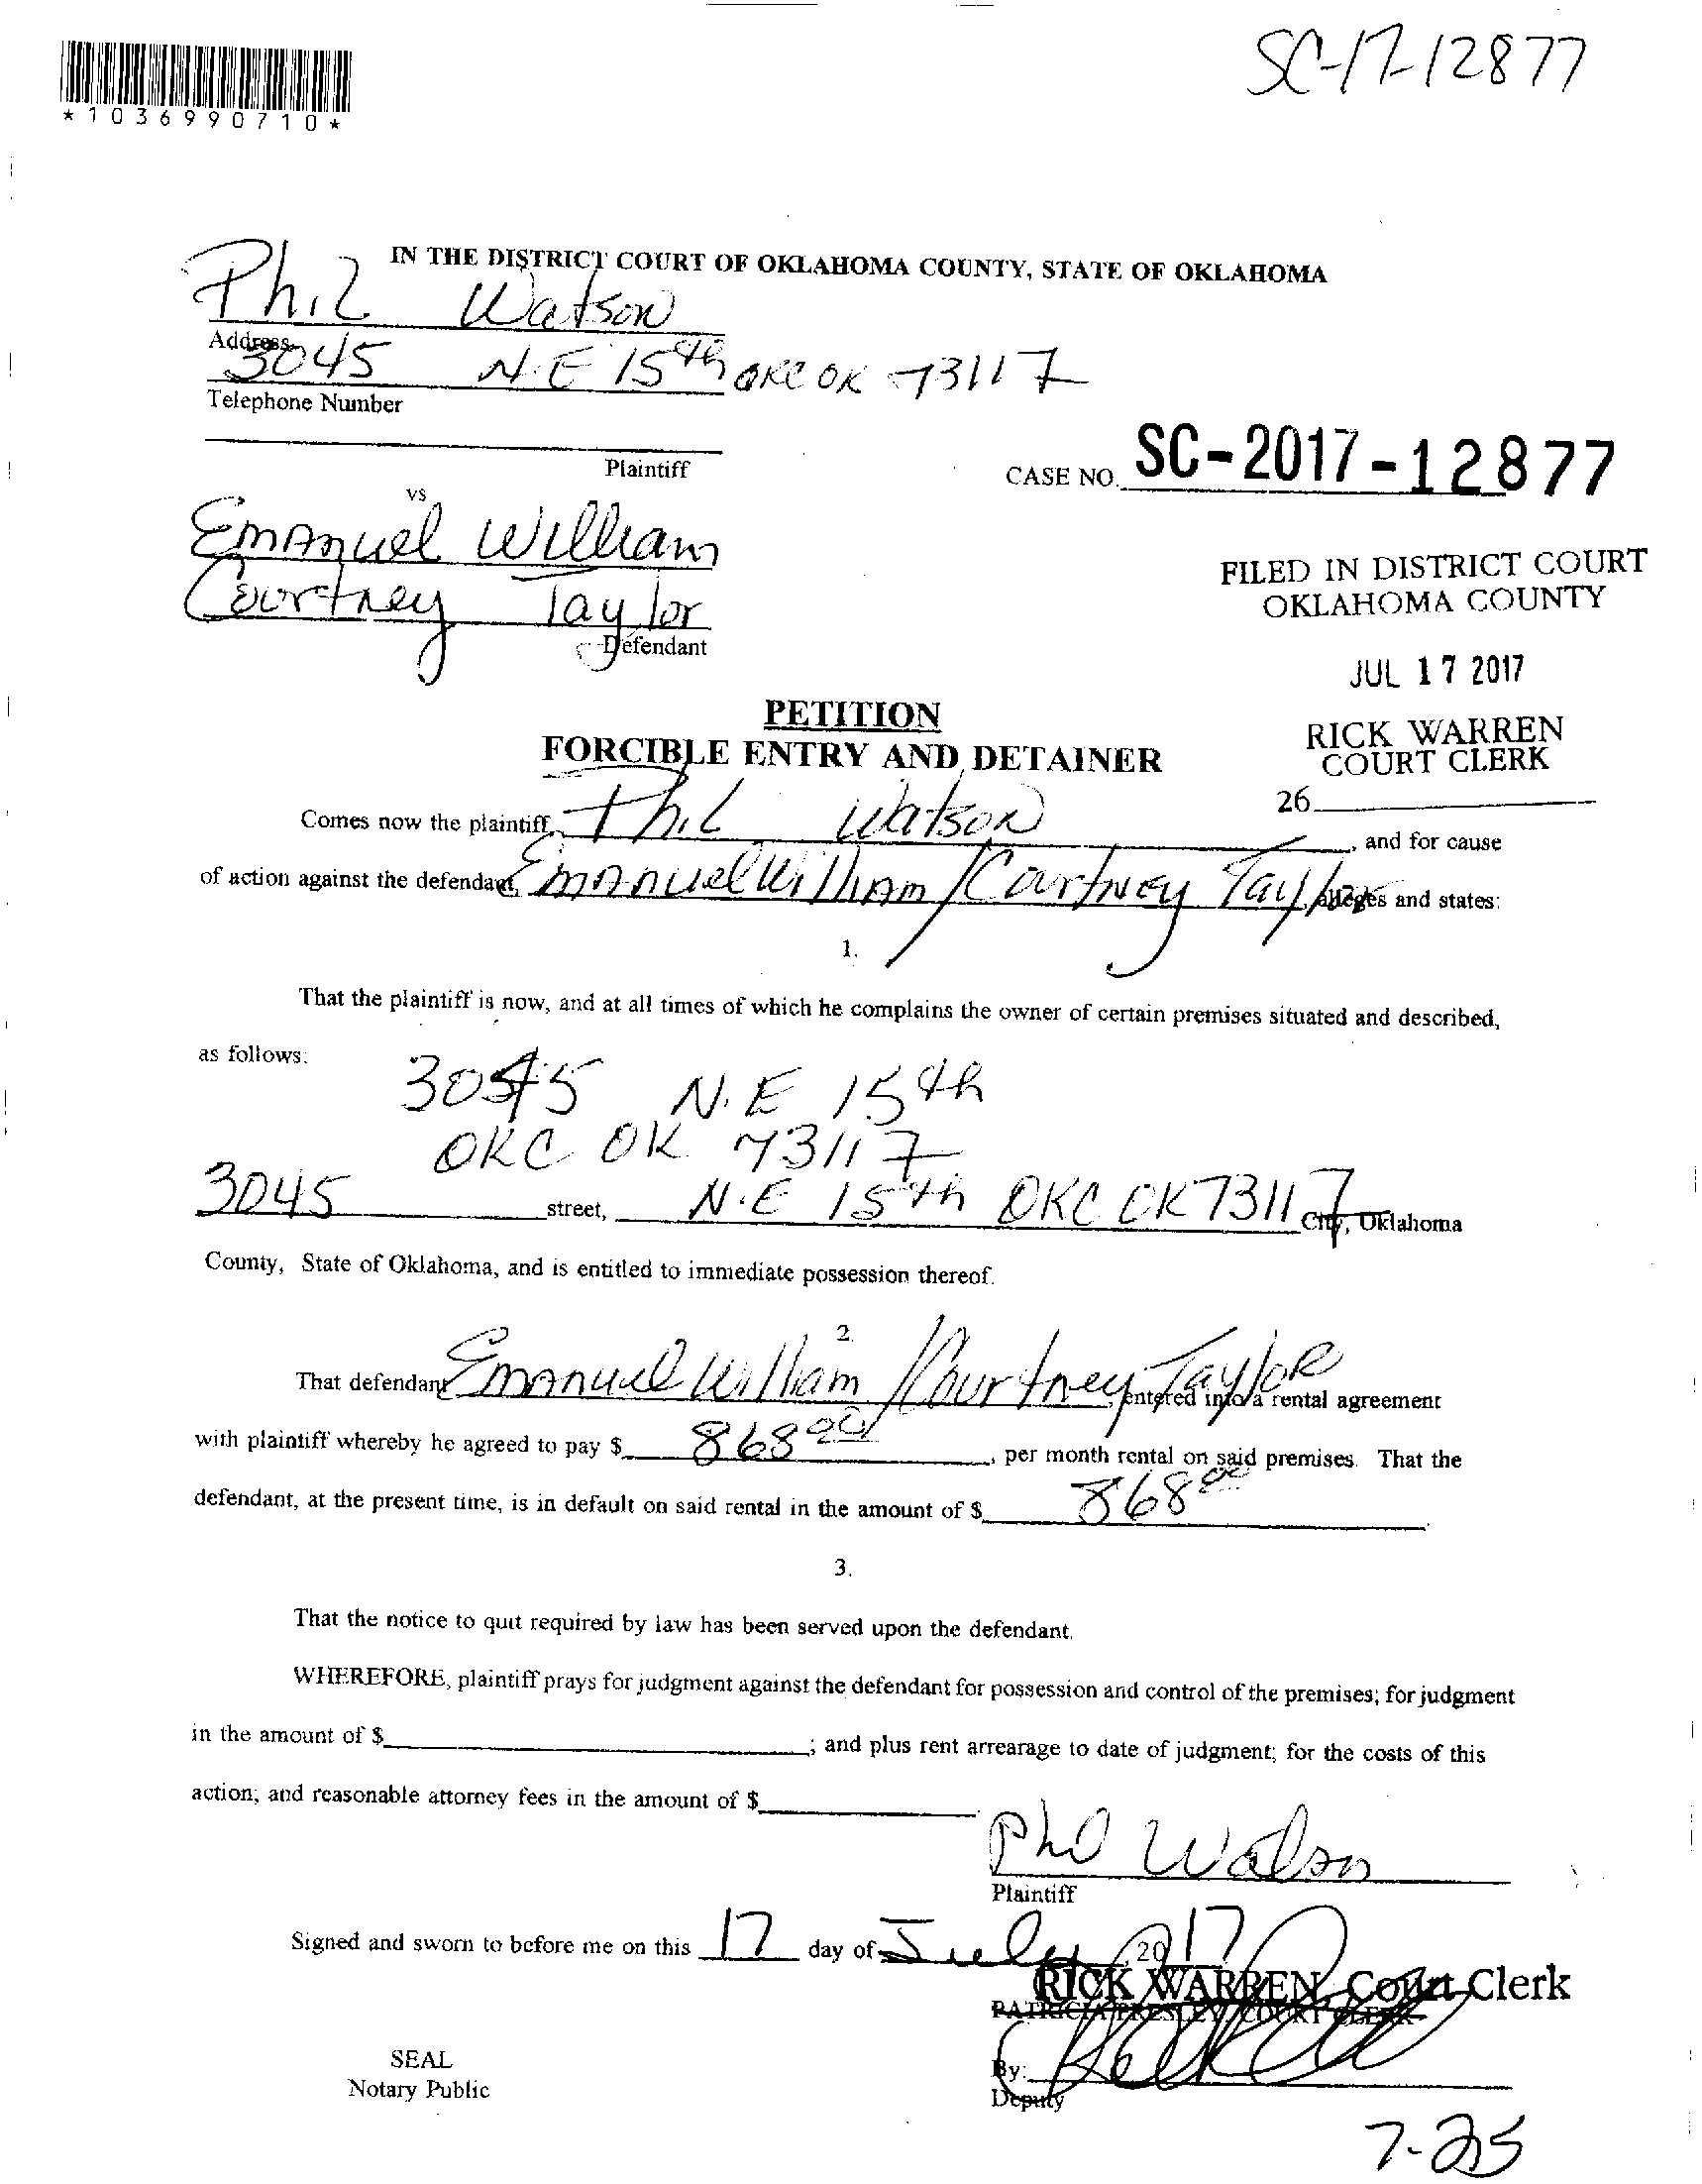 SC-17-12877
*1036990710*
IN THE DISTRICT COURT OF OKLAHOMA COUNTY, STATE OF OKLAHOMA
Phil Watson
Address
3045 N.E 15th OKC OK 73117
Telephone Number
Plaintiff
CASE NO. SC-2017-12877
vs
Emanuel William
Courtney Taylor
Defendant
FILED IN DISTRICT COURT
OKLAHOMA COUNTY
JUL 17 2017
RICK WARREN
COURT CLERK
26
PETITION
FORCIBLE ENTRY AND DETAINER
Comes now the plaintiff, Phil Watson, and for cause
of action against the defendant, Emanuel William/Courtney Taylor, alleges and states:
1.
That the plaintiff is now, and at all times of which he complains the owner of certain premises situated and described,
as follows:
3045 N.E 15th
OKC OK 73117
3045 street, N.E 15th OKC OK 73117 City, Oklahoma
County, State of Oklahoma, and is entitled to immediate possession thereof.
2.
That defendant Emanuel William/Courtney Taylor, entered into a rental agreement
with plaintiff whereby he agreed to pay $ 868 00, per month rental on said premises. That the
defendant, at the present time, is in default on said rental in the amount of $ 868 00
3.
That the notice to quit required by law has been served upon the defendant.
WHEREFORE, plaintiff prays for judgment against the defendant for possession and control of the premises; for judgment
in the amount of $ ; and plus rent arrearage to date of judgment; for the costs of this
action; and reasonable attorney fees in the amount of $
Phil Watson
Plaintiff
Signed and sworn to before me on this 17 day of July, 2017
RICK WARREN, Court Clerk
PATRICIA PRESLEY, COURT CLERK
SEAL
Notary Public
By:
Deputy
7-25